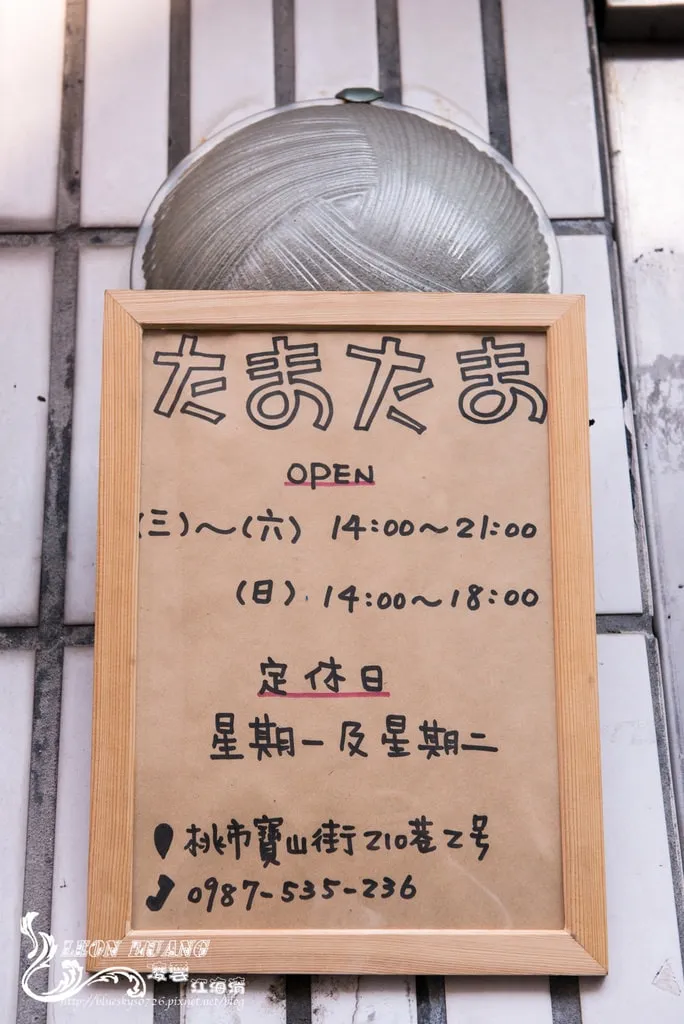 たまたま
OPEN
(三)～(六) 14:00～21:00
(日) 14:00～18:00
定休日
星期一及星期二
桃市寶山街210巷2号
0987-535-236
LEON HUANG
凌雲 江海清
http://bluesky0726.pixnet.net/blog